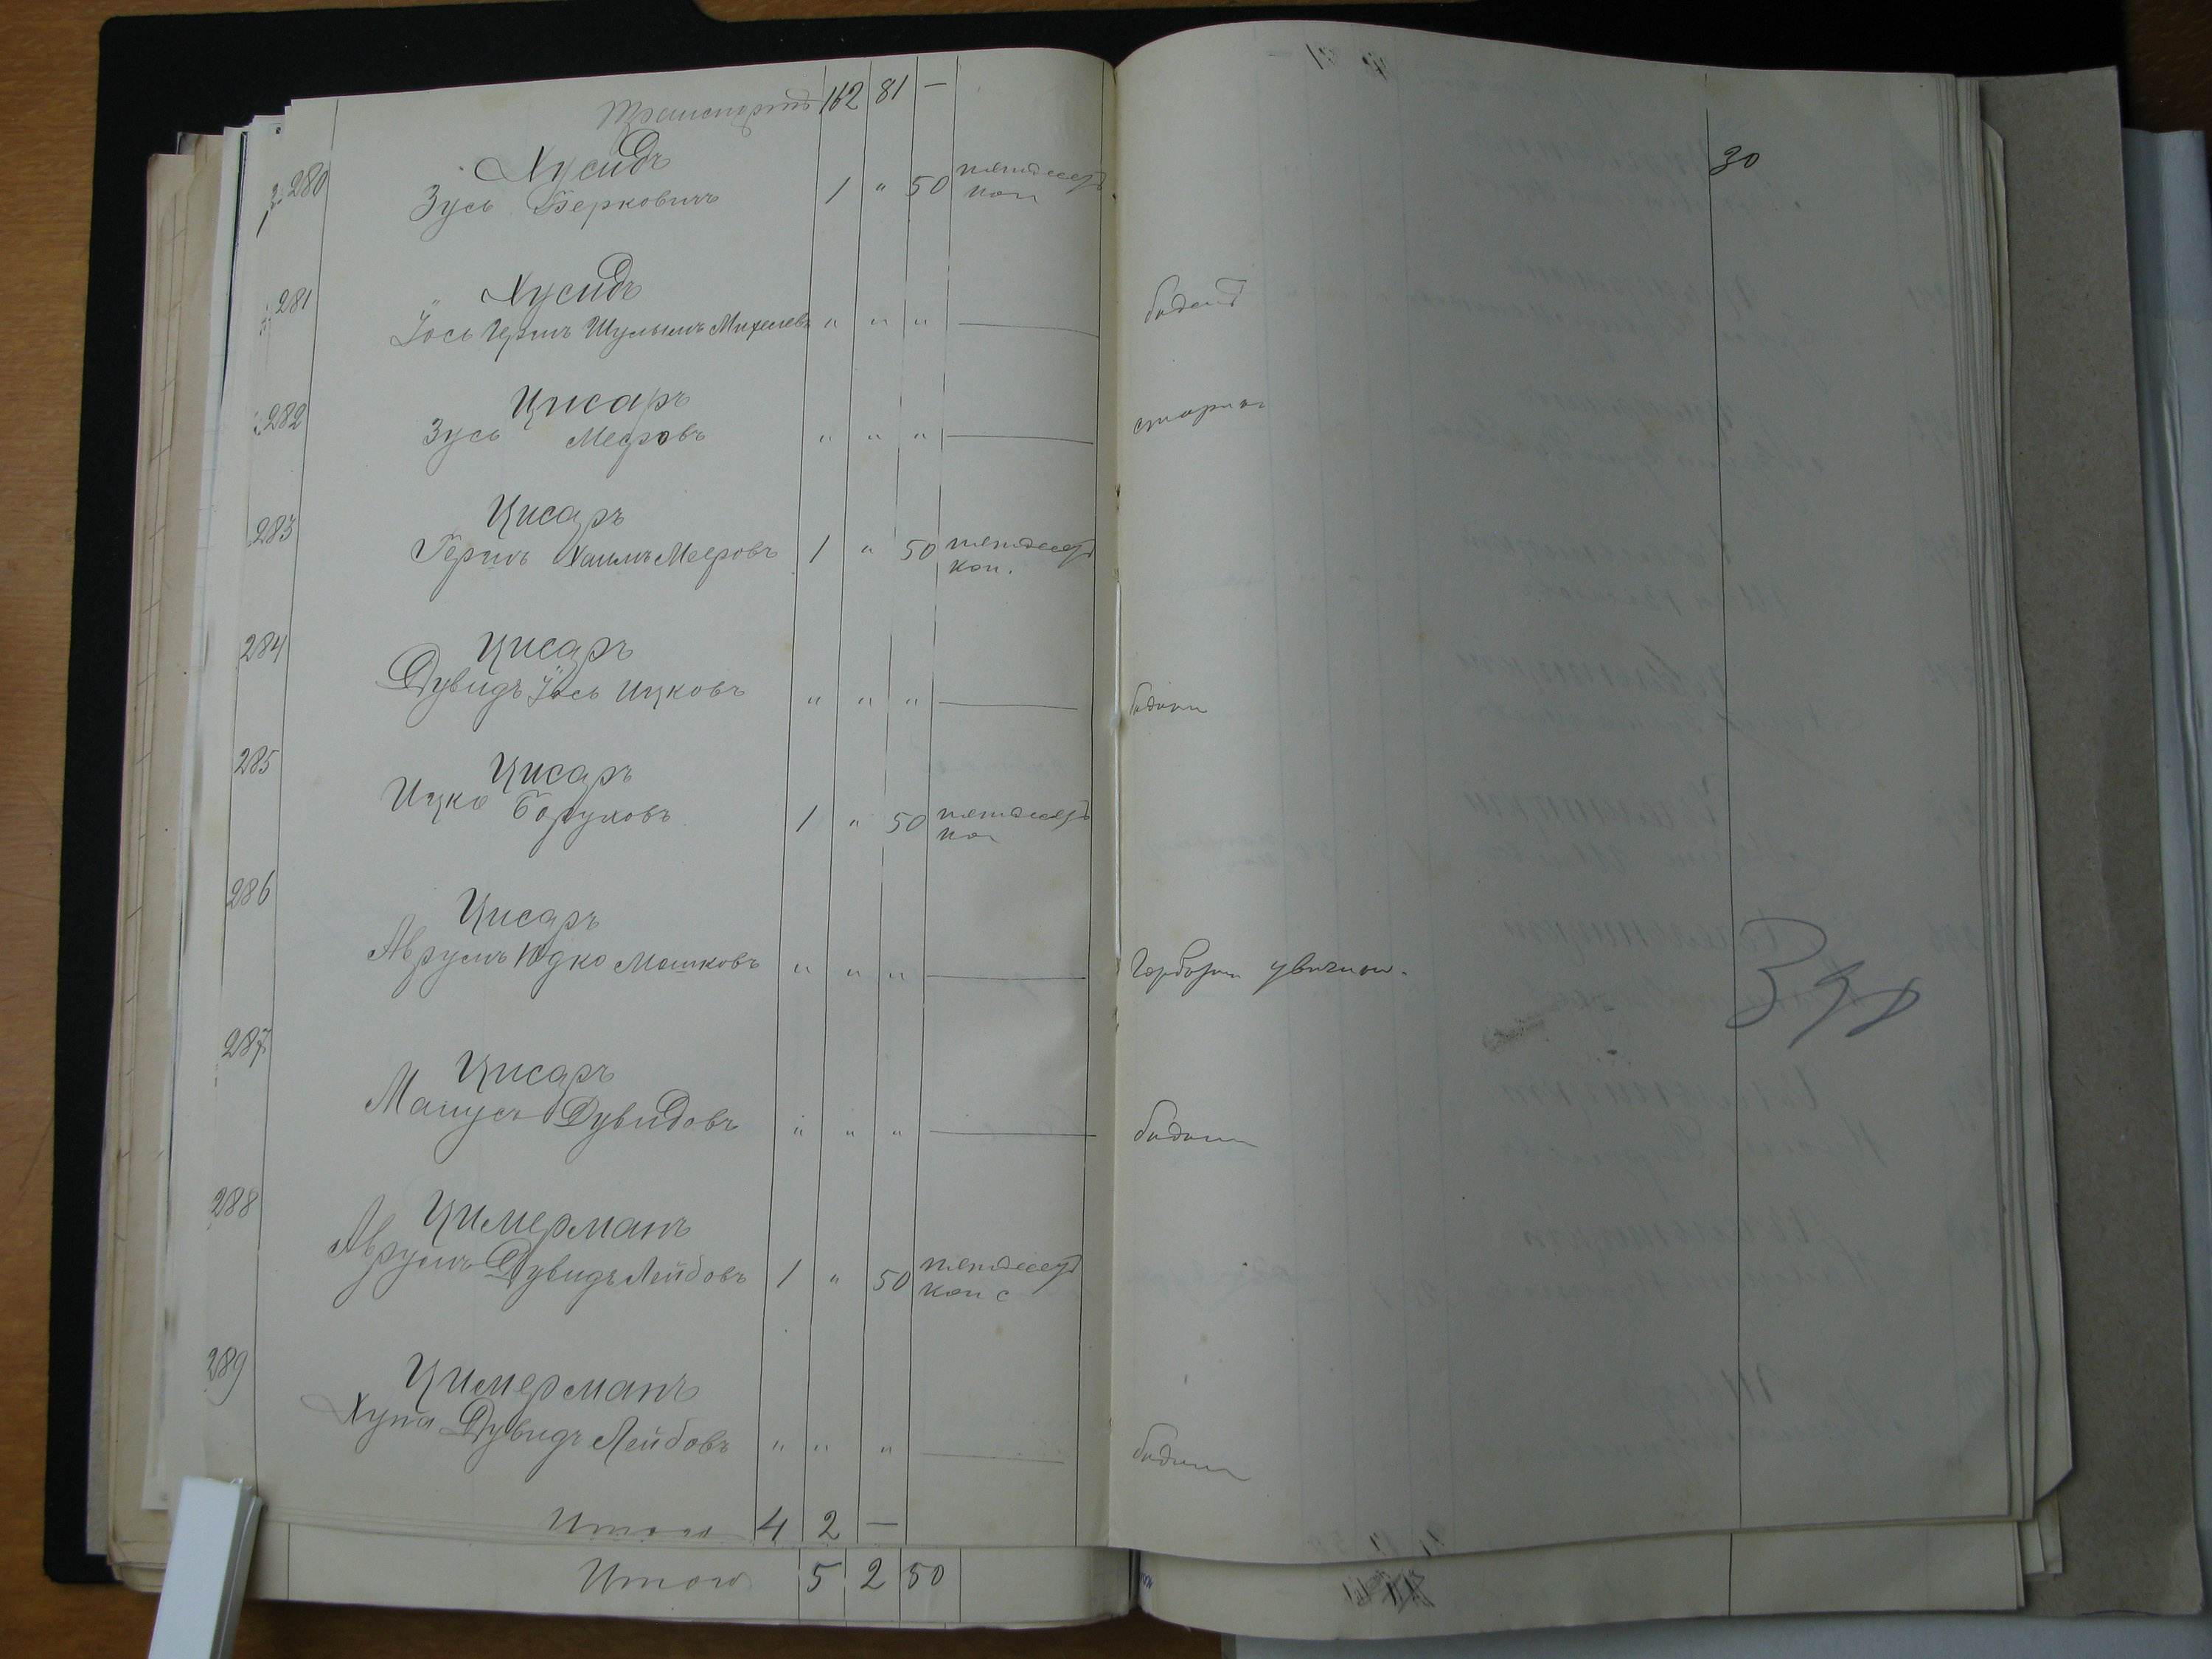 Транспортъ 162 81 —
280 Хусидъ
Зусь Берковичъ 1 " 50 пятдесятъ
коп
30
281 Хусидъ
Іось Гершъ Шулымъ Михелевъ " " " —
282 Цисаръ
Зусь Мееровъ " " " —
283 Цисаръ
Гершъ Хаимъ Мееровъ 1 " 50 пятдесятъ
коп.
284 Цисаръ
Дувидъ Іось Ицковъ " " " — бѣдный
285 Цисаръ
Ицко Боруховъ 1 " 50 пятдесятъ
коп
286 Цисаръ
Аврумъ Юдко Мошковъ " " " —
287 Цисаръ
Манусъ Дувидовъ " " " — бѣдный
288 Цимерманъ
Аврумъ Дувидъ Лейбовъ 1 " 50 пятдесятъ
коп с
289 Цимерманъ
Хуна Дувидъ Лейбовъ " " " — бѣдный
Итого 4 2 —
Итого 5 2 50